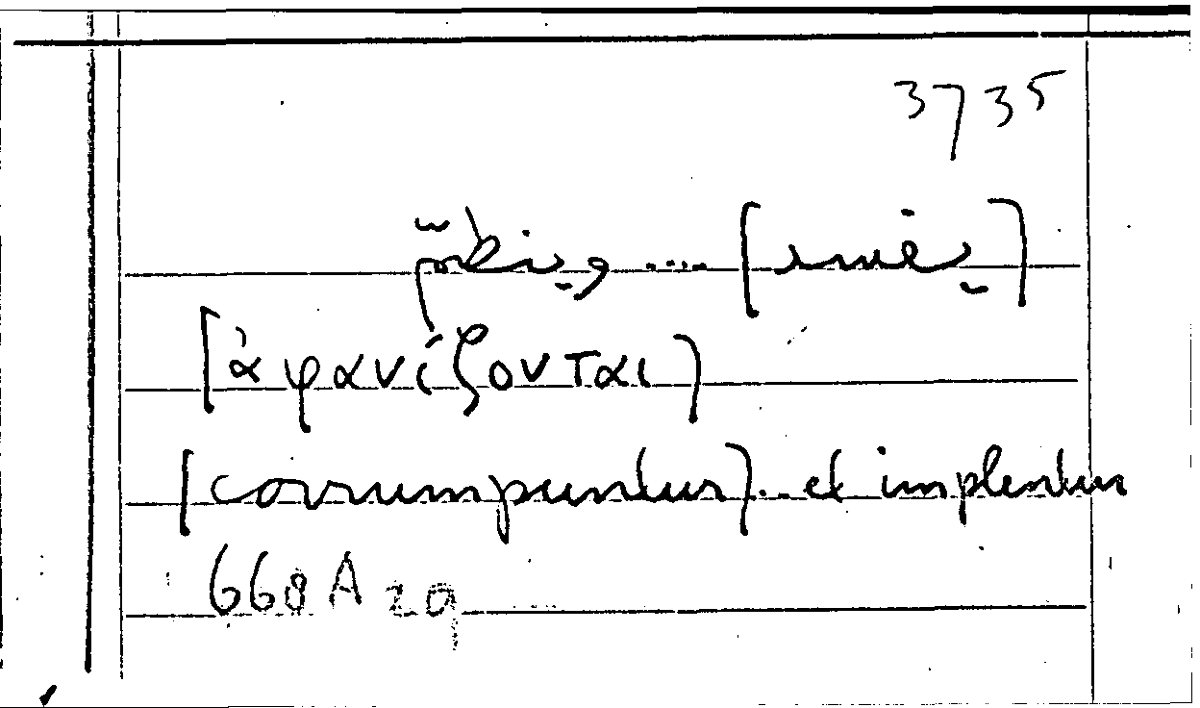 3735
[ἀφανίζονται]
[corrumpuntur]... et implentur
668 A 29